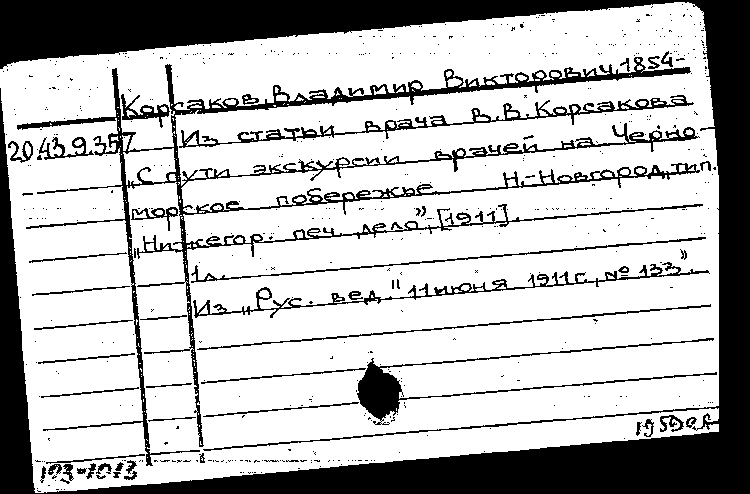 Корсаков, Владимир Викторович, 1854-
20.43.9.357 Из статьи врача В.В. Корсакова
„С пути экскурсии врачей на Черно-
морское побережье. Н.-Новгород, тип.
„Нижегор. печ. дело", [1911].
1л.
Из „Рус. вед." 11 июня 1911г., № 133".
193-1013